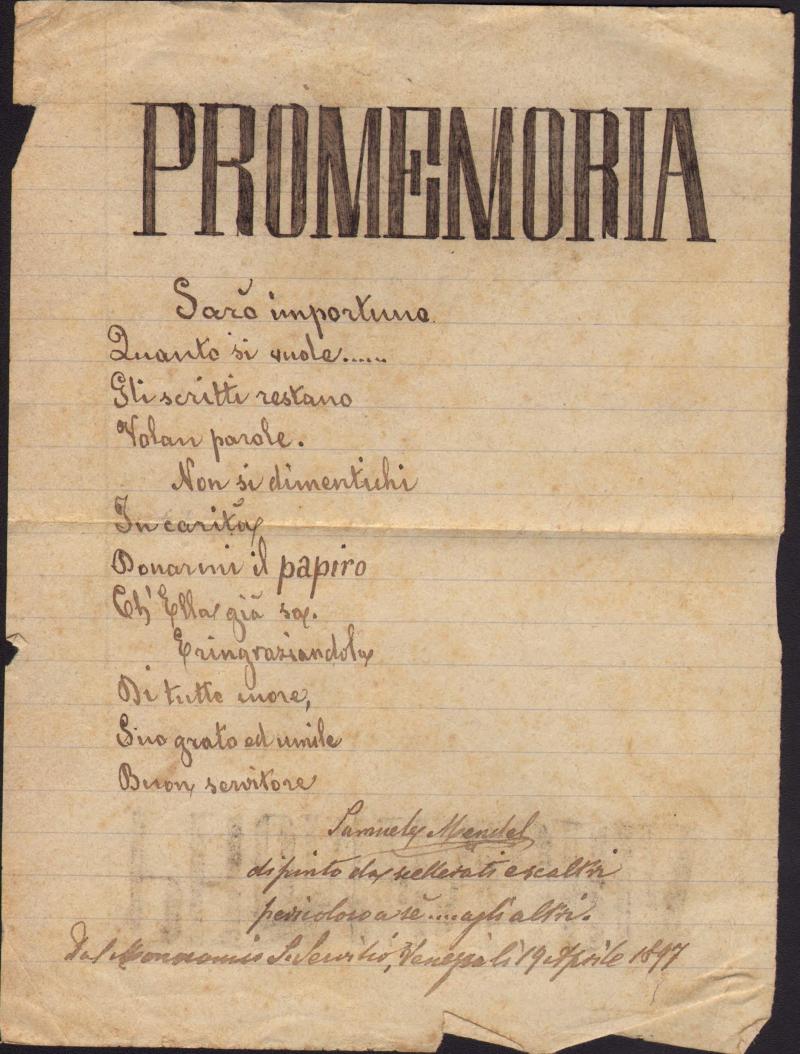 PROMEMORIA
Sarò importuno
Quanto si vuole......
Gli scritti restano
Volan parole.
Non si dimentichi
In carità
Donarmi il papiro
Ch' Ella già sa.
E ringraziandola
Di tutto cuore,
Suo grato ed umile
Buon servitore
Samuele Mendel
dipinto da scellerati e scaltri
pericoloso a sè.....agli altri.
Dal S. Servilio, Venezia lì 19 Aprile 1897